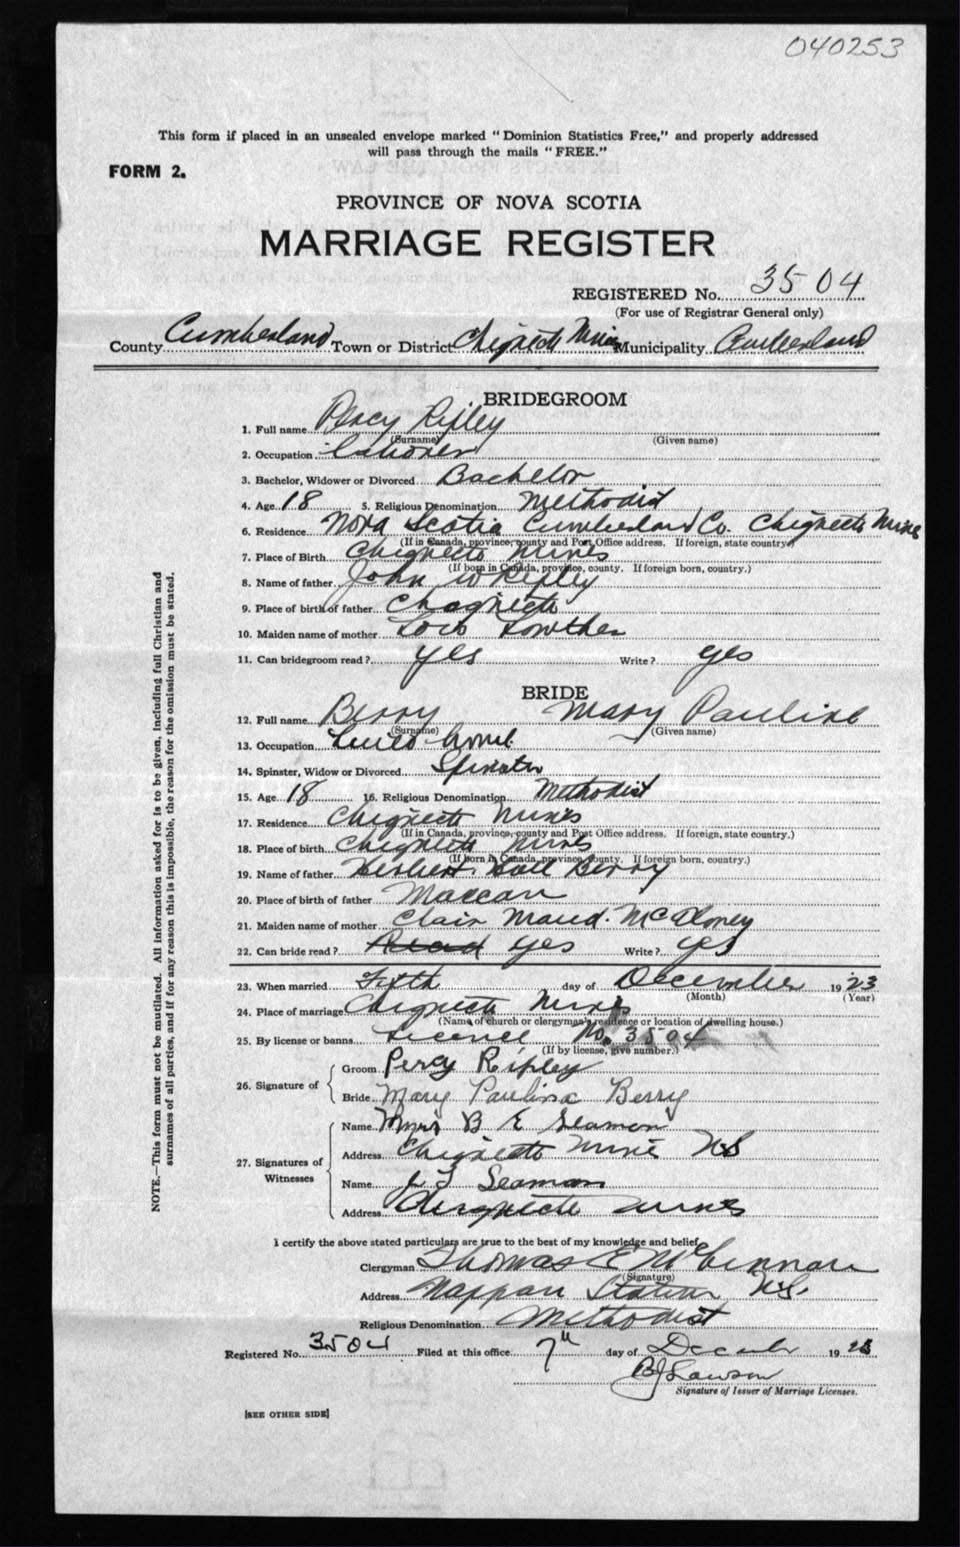 040253
This form if placed in an unsealed envelope marked "Dominion Statistics Free," and properly addressed
will pass through the mails "FREE."
FORM 2.
PROVINCE OF NOVA SCOTIA
MARRIAGE REGISTER
REGISTERED No. 3504
(For use of Registrar General only)
County Cumberland Town or District Chignecto Mines Municipality Cumberland
BRIDEGROOM
1. Full name Percy Ripley
(Surname) (Given name)
2. Occupation
3. Bachelor, Widower or Divorced Bachelor
4. Age 18 5. Religious Denomination Methodist
6. Residence Nova Scotia Cumberland Co. Chignecto Mines
(If in Canada, province, county and Post Office address. If foreign, state country)
7. Place of Birth Chignecto Mines
(If born in Canada, province, county. If foreign born, country.)
8. Name of father John W Ripley
9. Place of birth of father Chegnecto
10. Maiden name of mother Lowther
11. Can bridegroom read? yes Write? yes
BRIDE
12. Full name Berry Mary Pauline
(Surname) (Given name)
13. Occupation
14. Spinster, Widow or Divorced Spinster
15. Age 18 16. Religious Denomination Methodist
17. Residence Chignecto Mines
(If in Canada, province, county and Post Office address. If foreign, state country.)
18. Place of birth Chignecto Mines
(If born in Canada, province county. If foreign born, country.)
19. Name of father Herbert Hall Berry
20. Place of birth of father Maccan
21. Maiden name of mother Clair Maud. McAloney
22. Can bride read? Read yes Write? yes
23. When married Fifth day of December 1923
(Month) (Year)
24. Place of marriage Chignecto Mines
(Name of church or clergyman's residence or location of dwelling house.)
25. By license or banns License No. 3504
(If by license, give number.)
26. Signature of
Groom Percy Ripley
Bride Mary Paulina Berry
27. Signatures of Witnesses
Name Mrs B E Seamon
Address Chignecto Mine NS
Name J T Seaman
Address Chignecto Mines
I certify the above stated particulars are true to the best of my knowledge and belief
Clergyman Thomas E
(Signature)
Address Nappan Station N.S.
Religious Denomination Methodist
Registered No. 3504 Filed at this office 7th day of December 1923
BJ Lawson
Signature of Issuer of Marriage Licenses.
[SEE OTHER SIDE]
NOTE.—This form must not be mutilated. All information asked for is to be given, including full Christian and
surnames of all parties, and if for any reason this is impossible, the reason for the omission must be stated.